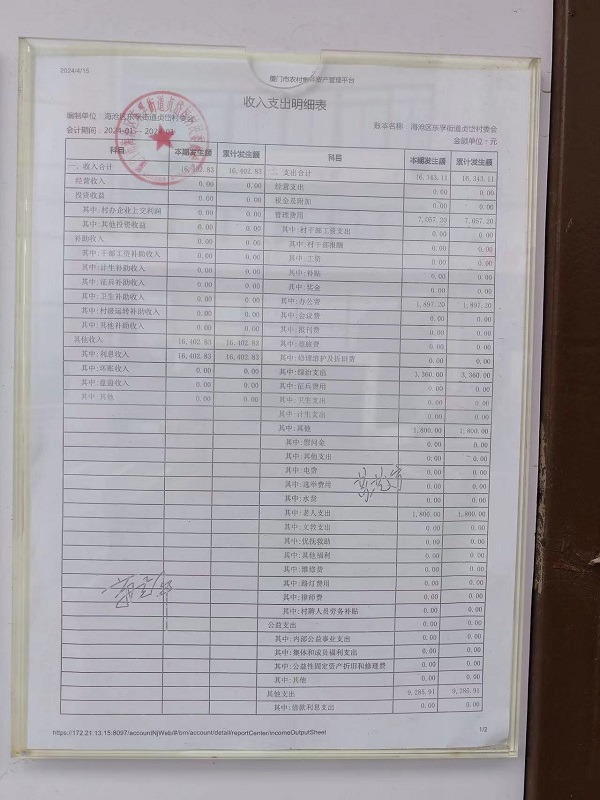 2024/4/15
厦门市农村集体资产管理平台
收入支出明细表
编制单位：海沧区东孚街道贞岱村委会 账本名称：海沧区东孚街道贞岱村委会
会计期间：2024-01 - 2024-01 金额单位：元
科目 本期发生额 累计发生额 科目 本期发生额 累计发生额
一、收入合计 16,402.83 16,402.83 二、支出合计 16,343.11 16,343.11
经营收入 0.00 0.00 经营支出 0.00 0.00
投资收益 0.00 0.00 税金及附加 0.00 0.00
其中:村办企业上交利润 0.00 0.00 管理费用 7,057.20 7,057.20
其中:其他投资收益 0.00 0.00 其中:村干部工资支出 0.00 0.00
补助收入 0.00 0.00 其中:村干部报酬 0.00 0.00
其中:干部工资补助收入 0.00 0.00 其中:工资 0.00 0.00
其中:计生补助收入 0.00 0.00 其中:补贴 0.00 0.00
其中:征兵补助收入 0.00 0.00 其中:奖金 0.00 0.00
其中:卫生补助收入 0.00 0.00 其中:办公费 1,897.20 1,897.20
其中:村级运转补助收入 0.00 0.00 其中:会议费 0.00 0.00
其中:其他补助收入 0.00 0.00 其中:报刊费 0.00 0.00
其他收入 16,402.83 16,402.83 其中:差旅费 0.00 0.00
其中:利息收入 16,402.83 16,402.83 其中:修理维护及折旧费 0.00 0.00
其中:坏账收入 0.00 0.00 其中:综治支出 3,360.00 3,360.00
其中:盘盈收入 0.00 0.00 其中:征兵费用 0.00 0.00
其中:其他 0.00 0.00 其中:卫生支出 0.00 0.00
其中:计生支出 0.00 0.00
其中:其他 1,800.00 1,800.00
其中:慰问金 0.00 0.00
其中:其他支出 0.00 0.00
其中:电费 0.00 0.00
其中:选举费用 0.00 0.00
其中:水费 0.00 0.00
其中:老人支出 1,800.00 1,800.00
其中:文教支出 0.00 0.00
其中:优抚救助 0.00 0.00
其中:其他福利 0.00 0.00
其中:维修费 0.00 0.00
其中:路灯费用 0.00 0.00
其中:律师费 0.00 0.00
其中:村聘人员劳务补贴 0.00 0.00
公益支出 0.00 0.00
其中:内部公益事业支出 0.00 0.00
其中:集体和成员福利支出 0.00 0.00
其中:公益性固定资产折旧和修理费 0.00 0.00
其中:其他 0.00 0.00
其他支出 9,285.91 9,285.91
其中:借款利息支出 0.00 0.00
https://172.21.13.15:8097/accountNjWeb/#/bm/account/detail/reportCenter/incomeOutputSheet 1/2